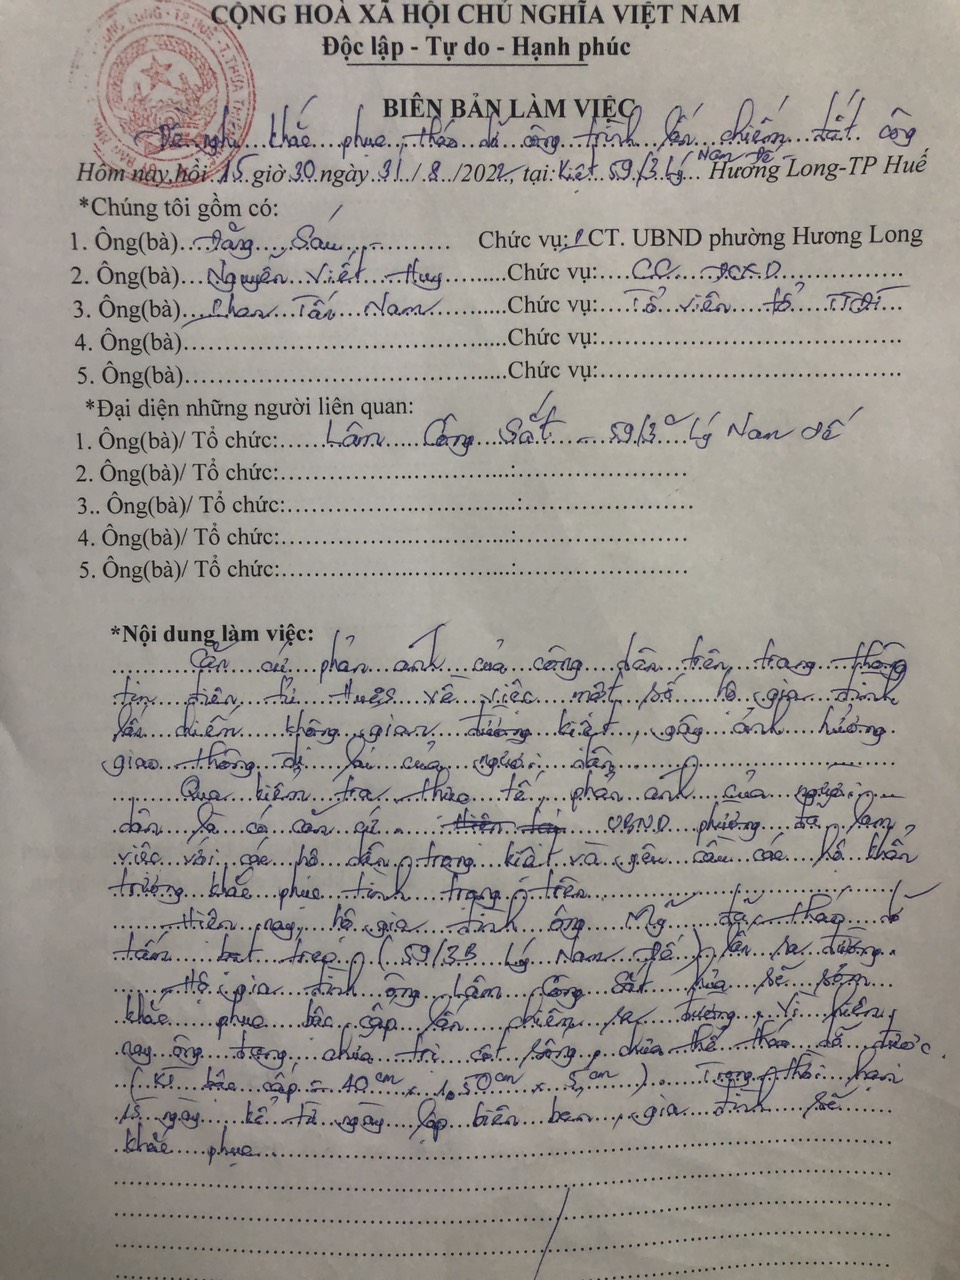 CỘNG HOÀ XÃ HỘI CHỦ NGHĨA VIỆT NAM
Độc lập - Tự do - Hạnh phúc
BIÊN BẢN LÀM VIỆC
Đề nghị khắc phục, tháo dỡ công trình lấn chiếm đất công
Hôm nay, hồi 15 giờ 30 ngày 31/8/2022, tại: Kiệt 59/3 Lý Nam Đế - Hương Long-TP Huế
*Chúng tôi gồm có:
1. Ông(bà) Đặng Sáu Chức vụ: PCT. UBND phường Hương Long
2. Ông(bà) Nguyễn Viết Huy Chức vụ: CC ĐCXD
3. Ông(bà) Phan Tấn Nam Chức vụ: Tổ viên tổ TTĐT
4. Ông(bà) Chức vụ:
5. Ông(bà) Chức vụ:
*Đại diện những người liên quan:
1. Ông(bà)/ Tổ chức: Lâm Công Sắt - 59/3 Lý Nam Đế
2. Ông(bà)/ Tổ chức: :
3.. Ông(bà)/ Tổ chức: :
4. Ông(bà)/ Tổ chức: :
5. Ông(bà)/ Tổ chức: :
*Nội dung làm việc:
Căn cứ phản ánh của công dân trên trang thông
tin điện tử HueS về việc một số hộ gia đình
lấn chiếm không gian đường kiệt, gây ảnh hưởng
giao thông đi lại của người dân
Qua kiểm tra thực tế, phản ánh của người
dân là có căn cứ. UBND phường đã làm
việc với các hộ dân trong kiệt và yêu cầu các hộ khẩn
trương khắc phục tình trạng trên
Hiện nay, hộ gia đình ông Mỹ đã tháo dỡ
tấm bạt (59/3B Lý Nam Đế) lấn ra đường.
Hộ gia đình ông Lâm Công Sắt hứa sẽ sớm
khắc phục bậc cấp lấn chiếm ra đường. Vì hiện
nay ông đang chữa trị cột sống, chưa thể tháo dỡ được
(KT bậc cấp = 40cm x 1,50cm x 5cm). Trong thời hạn
15 ngày kể từ ngày lập biên bản, gia đình sẽ
khắc phục